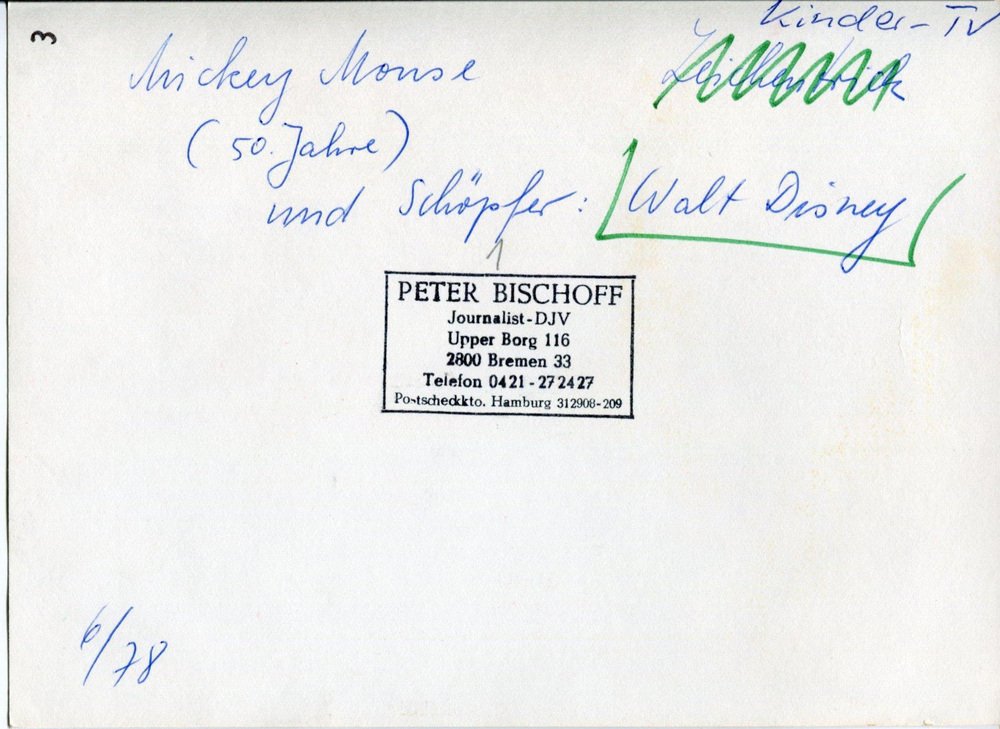 3
Kinder-TV
Zeichentrick
Mickey Mouse
(50. Jahre)
und Schöpfer: Walt Disney
1
PETER BISCHOFF
Journalist-DJV
Upper Borg 116
2800 Bremen 33
Telefon 0421-272427
Postscheckkto. Hamburg 312908-209
6/78